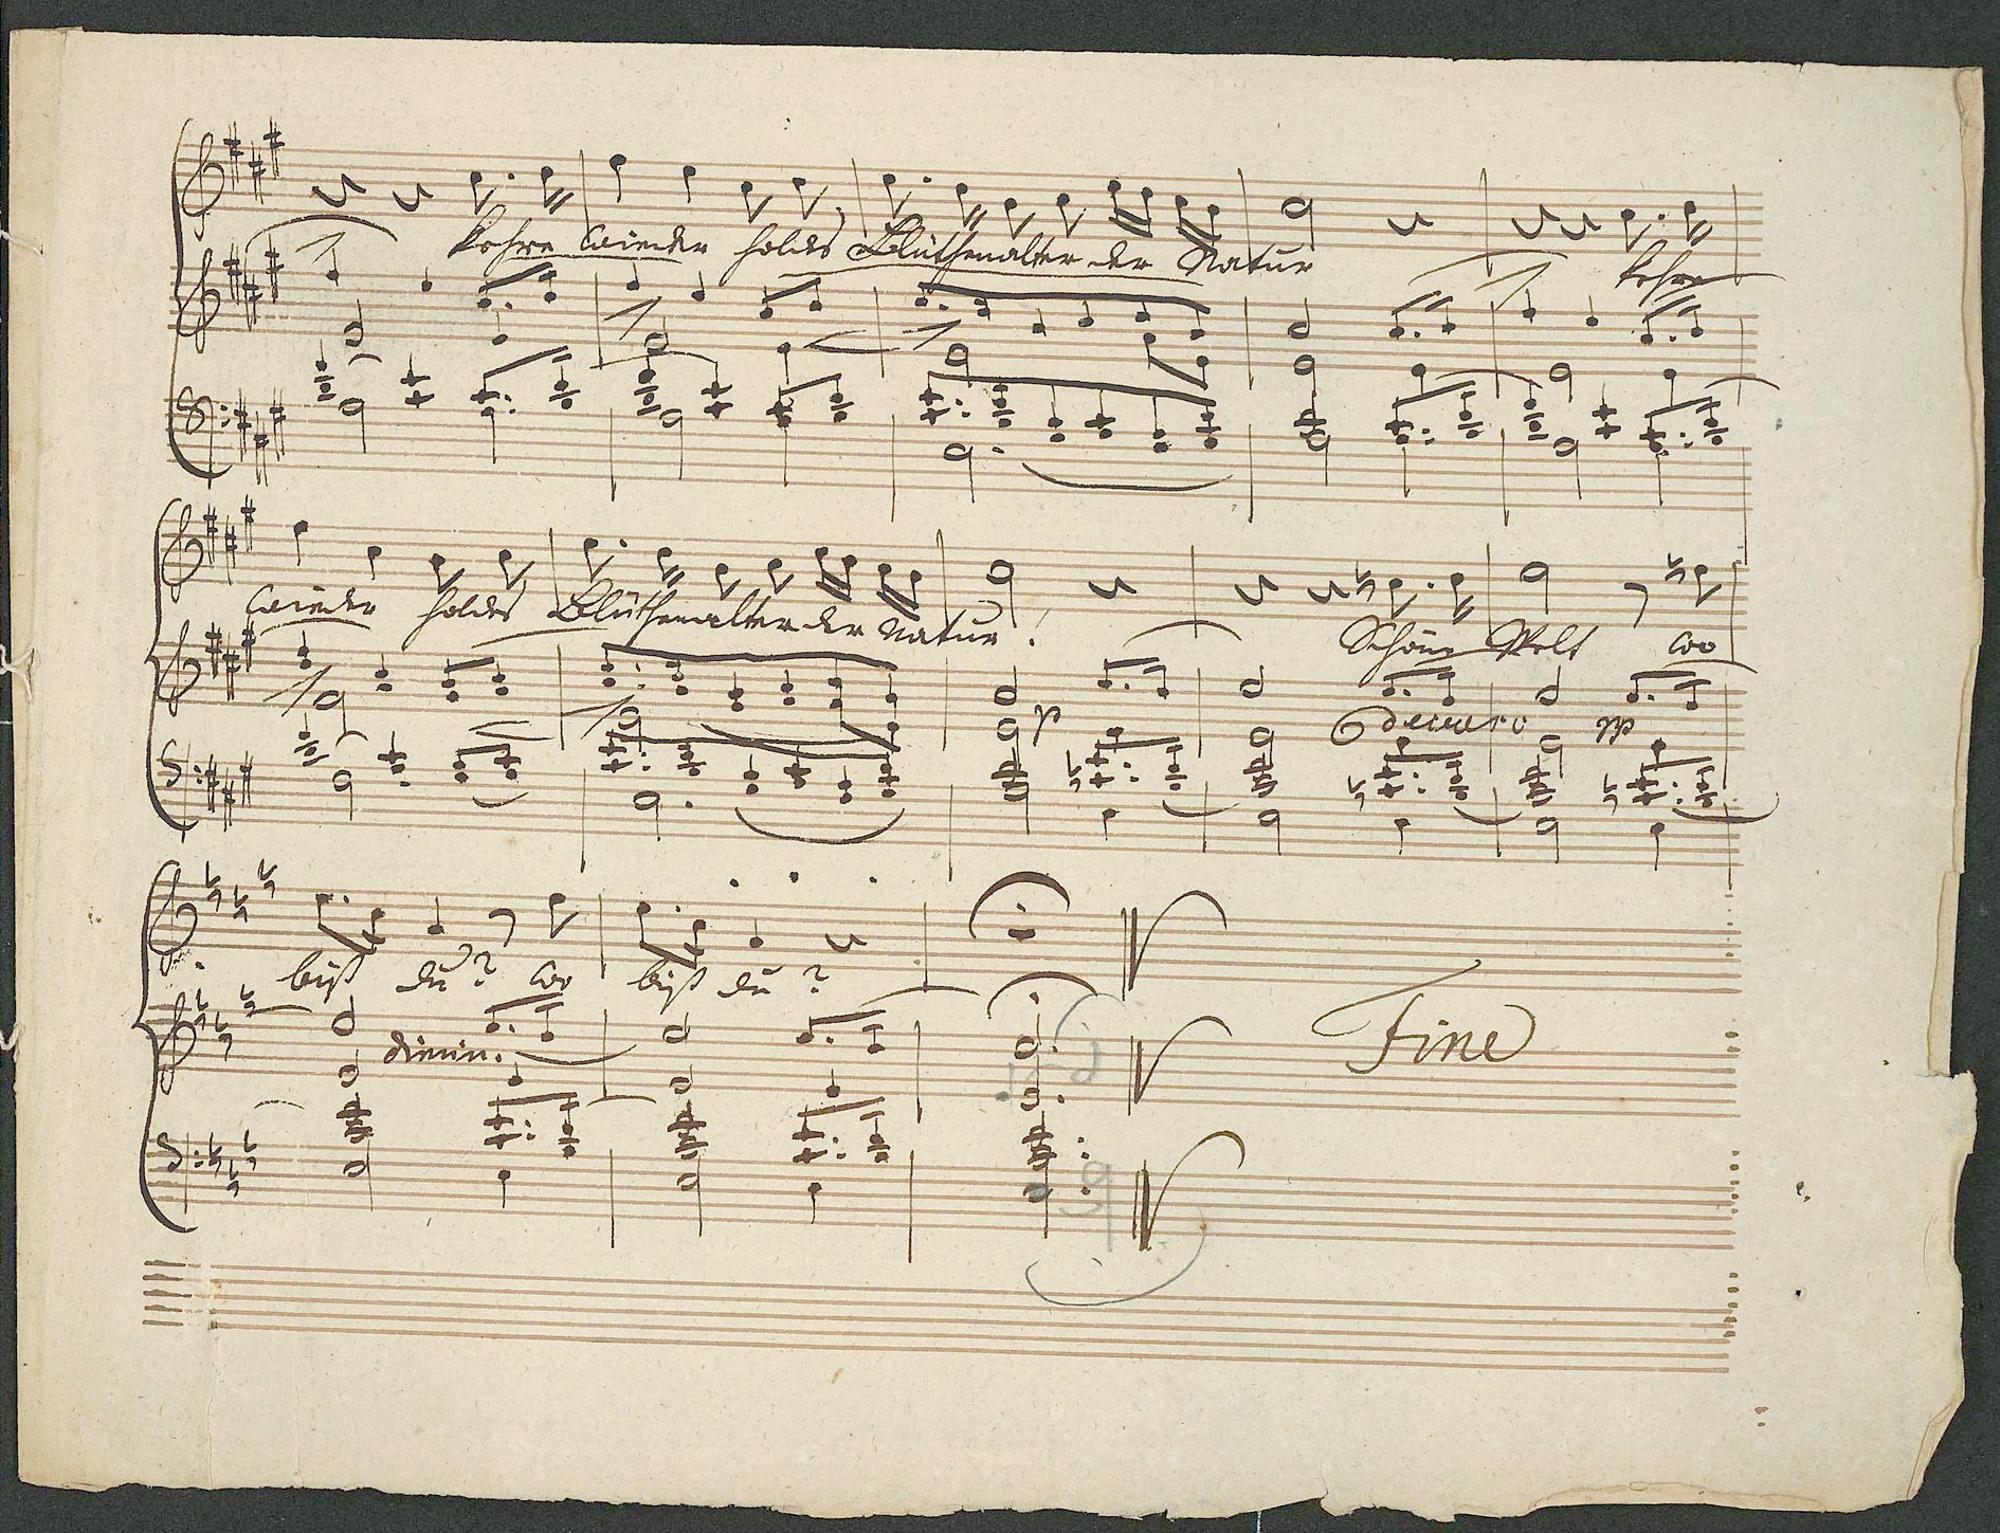 kehre wieder holdes Blüthenalter der Natur kehre
wieder holdes Blüthenalter der Natur! Schöne Welt wo
p decresc pp
bist du? wo bist du?
dimin.
Fine